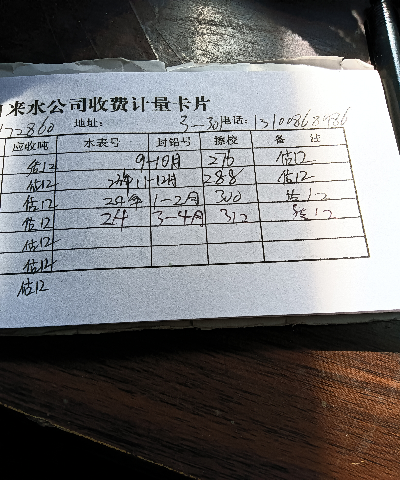 来水公司收费计量卡片
172860 地址: 3-301 电话: 13100868486
应收吨 水表号 封铅号 擦校 备 注
估12 9-10月 276 估12
估12 23年 11-12月 288 估12
估12 24年 1-2月 300 估12
估12 24 3-4月 312 估12
估12
估12
估12